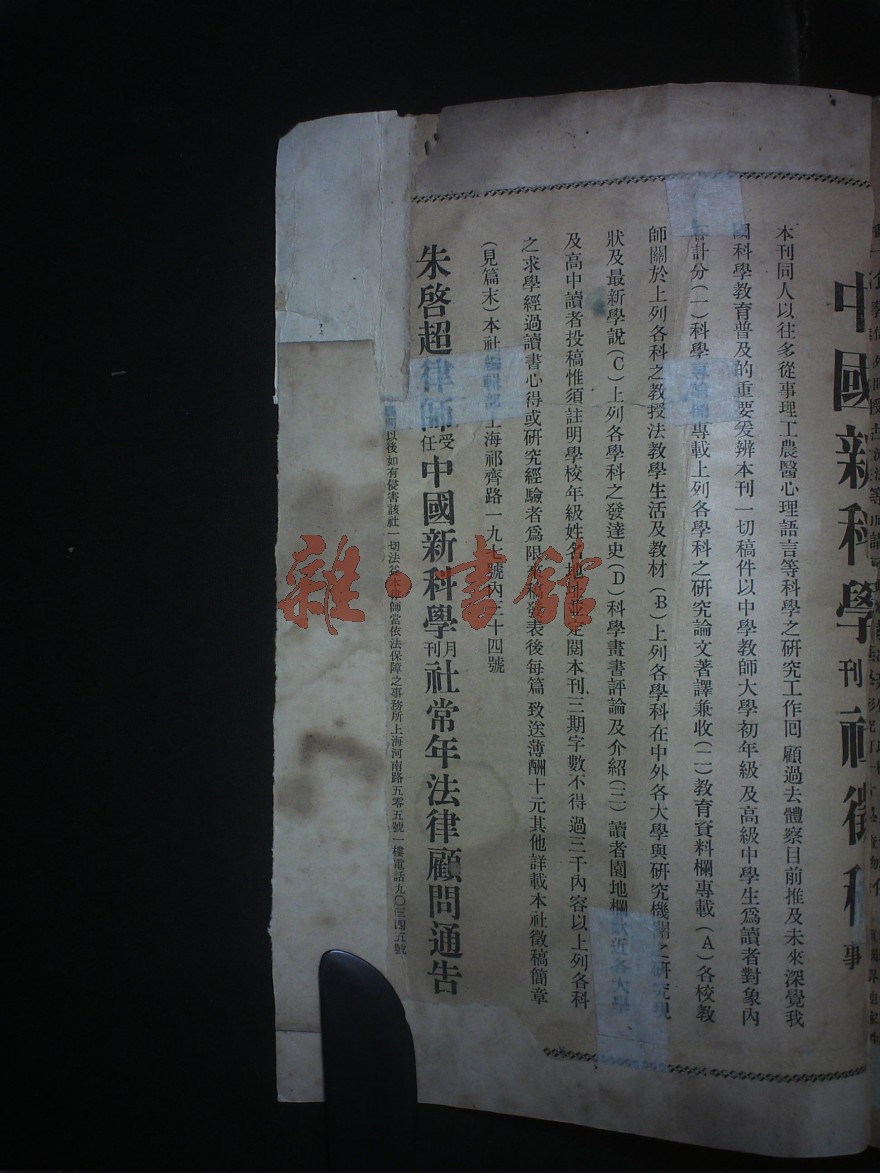 中國新科學刊社徵稿事
本刊同人以往多從事理工農醫心理語言等科學之研究工作囘顧過去體察目前推及未來深覺我
國科學教育普及的重要爰辨本刊一切稿件以中學教師大學初年級及高級中學生爲讀者對象內
容計分(一)科學專論欄專載上列各學科之研究論文著譯兼收(二)教育資料欄專載(A)各校教
師關於上列各科之教授法教學生活及教材(B)上列各學科在中外各大學與研究機關之研究現
狀及最新學說(C)上列各學科之發達史(D)科學畫書評論及介紹(三)讀者園地欄歡迎各大學
及高中讀者投稿惟須註明學校年級姓名地址並定閱本刊三期字數不得過三千內容以上列各科
之求學經過讀書心得或研究經驗者爲限來稿發表後每篇致送薄酬十元其他詳載本社徵稿簡章
(見篇末)本社編輯部上海祁齊路一九七號內三十四號
朱啓超律師受任中國新科學月刊社常年法律顧問通告
以後如有侵害該社一切法益本律師當依法保障之事務所上海河南路五零五號一樓電話九〇三四五號
雜·書館